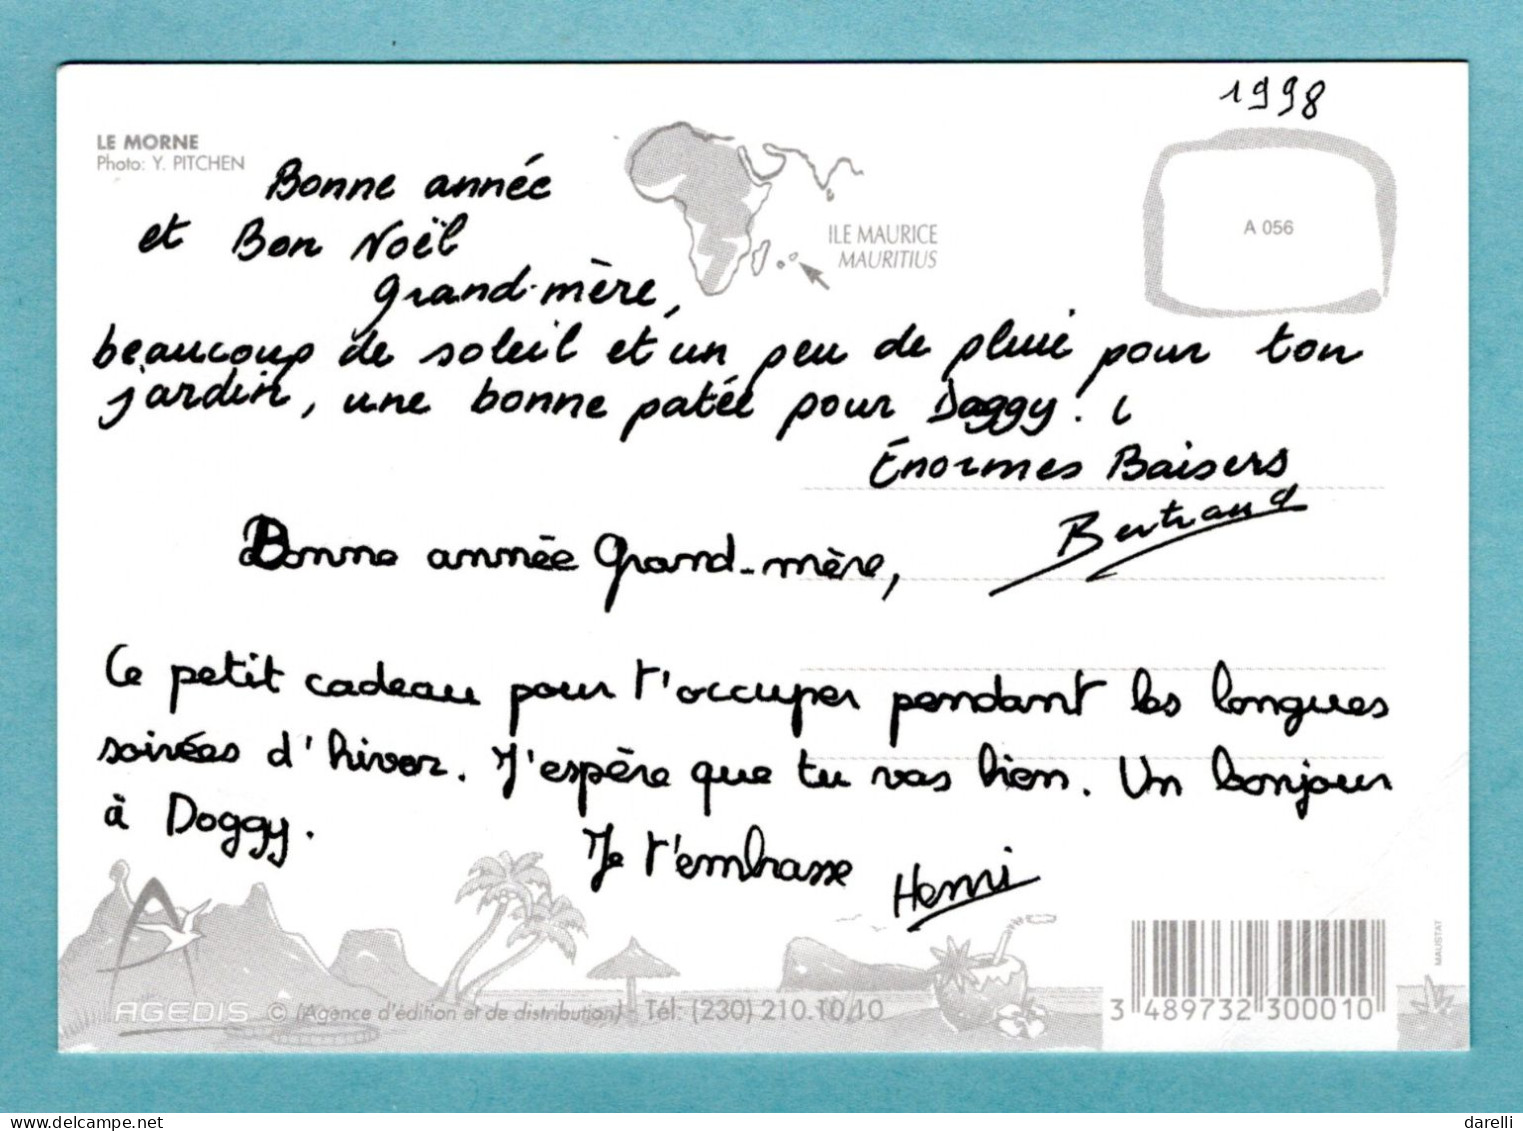 1998
LE MORNE
Photo: Y. PITCHEN
ILE MAURICE
MAURITIUS
A 056
Bonne année
et Bon Noël
Grand-mère,
beaucoup de soleil et un peu de pluie pour ton
jardin, une bonne patée pour Doggy!
Énormes Baisers
Bertrand
Bonne année Grand-mère,
Ce petit cadeau pour t'occuper pendant les longues
soirées d'hiver. J'espère que tu vas bien. Un bonjour
à Doggy.
Je t'embrasse Henri
AGEDIS © (Agence d'édition et de distribution) - Tél: (230) 210.10/10
3 489732 300010
MAUSTAT
darelli